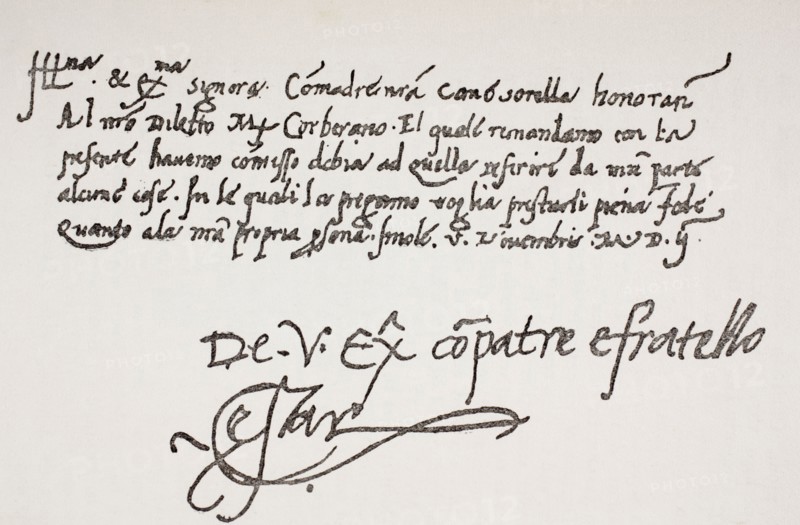 Illma. & Exma signora. Cõmadre nrã come sorella honoran
Al nrõ Diletto My Corberano. El quale remandamo con la
presente havemo cõmisso debia ad quella referire da nrã parte
alcune cose. In le quali la pregamo voglia prestarli piena fede
Quanto ala nrã propria psona. Imole. V. Novembris. M D. ij
De. V. Ex cõpatre e fratello
Cesar